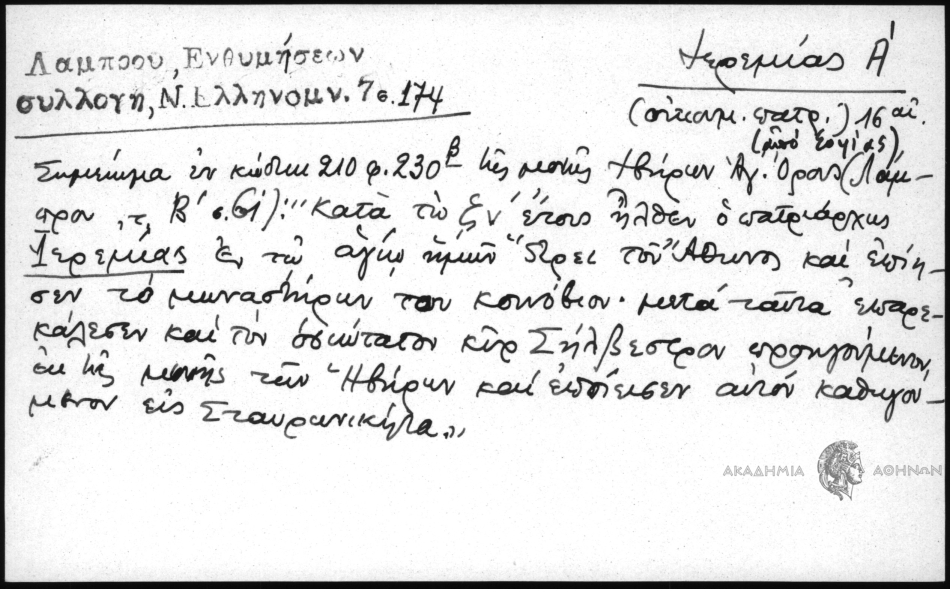 Λαμπρου, Ενθυμήσεων
συλλογή, Ν. Ελληνομν. 7 σ. 174
Ἱερεμίας Α΄
(οἰκουμ. πατρ.) 16 αἰ.
(ἀπό
Σημείωμα ἐν κώδικι 210 φ. 230β τῆς μονῆς Ἰβήρων Ἁγ. Ὄρους (Λάμ-
πρου, τ. Β΄ σ. 61): "Κατὰ τὸ ξν΄ ἔτους ἦλθεν ὁ πατριάρχης
Ἱερεμίας ἐν τῷ ἁγίῳ ἡμῶν Ὄρει τοῦ Ἄθωνος καὶ ἐποίη-
σεν τὸ μοναστήριν του κοινόβιον. μετά ταῦτα ἐπαρε-
κάλεσεν καὶ τὸν ὁσιώτατον κῦρ Σήλβεστρον προηγούμενον
ἐκ τῆς μονῆς τῶν Ἠβήρων καὶ ἐποίεισεν αὐτόν καθηγού-
μενον εἰς Σταυρωνικήτα.."
ΑΚΑΔΗΜΙΑ ΑΘΗΝΩΝ